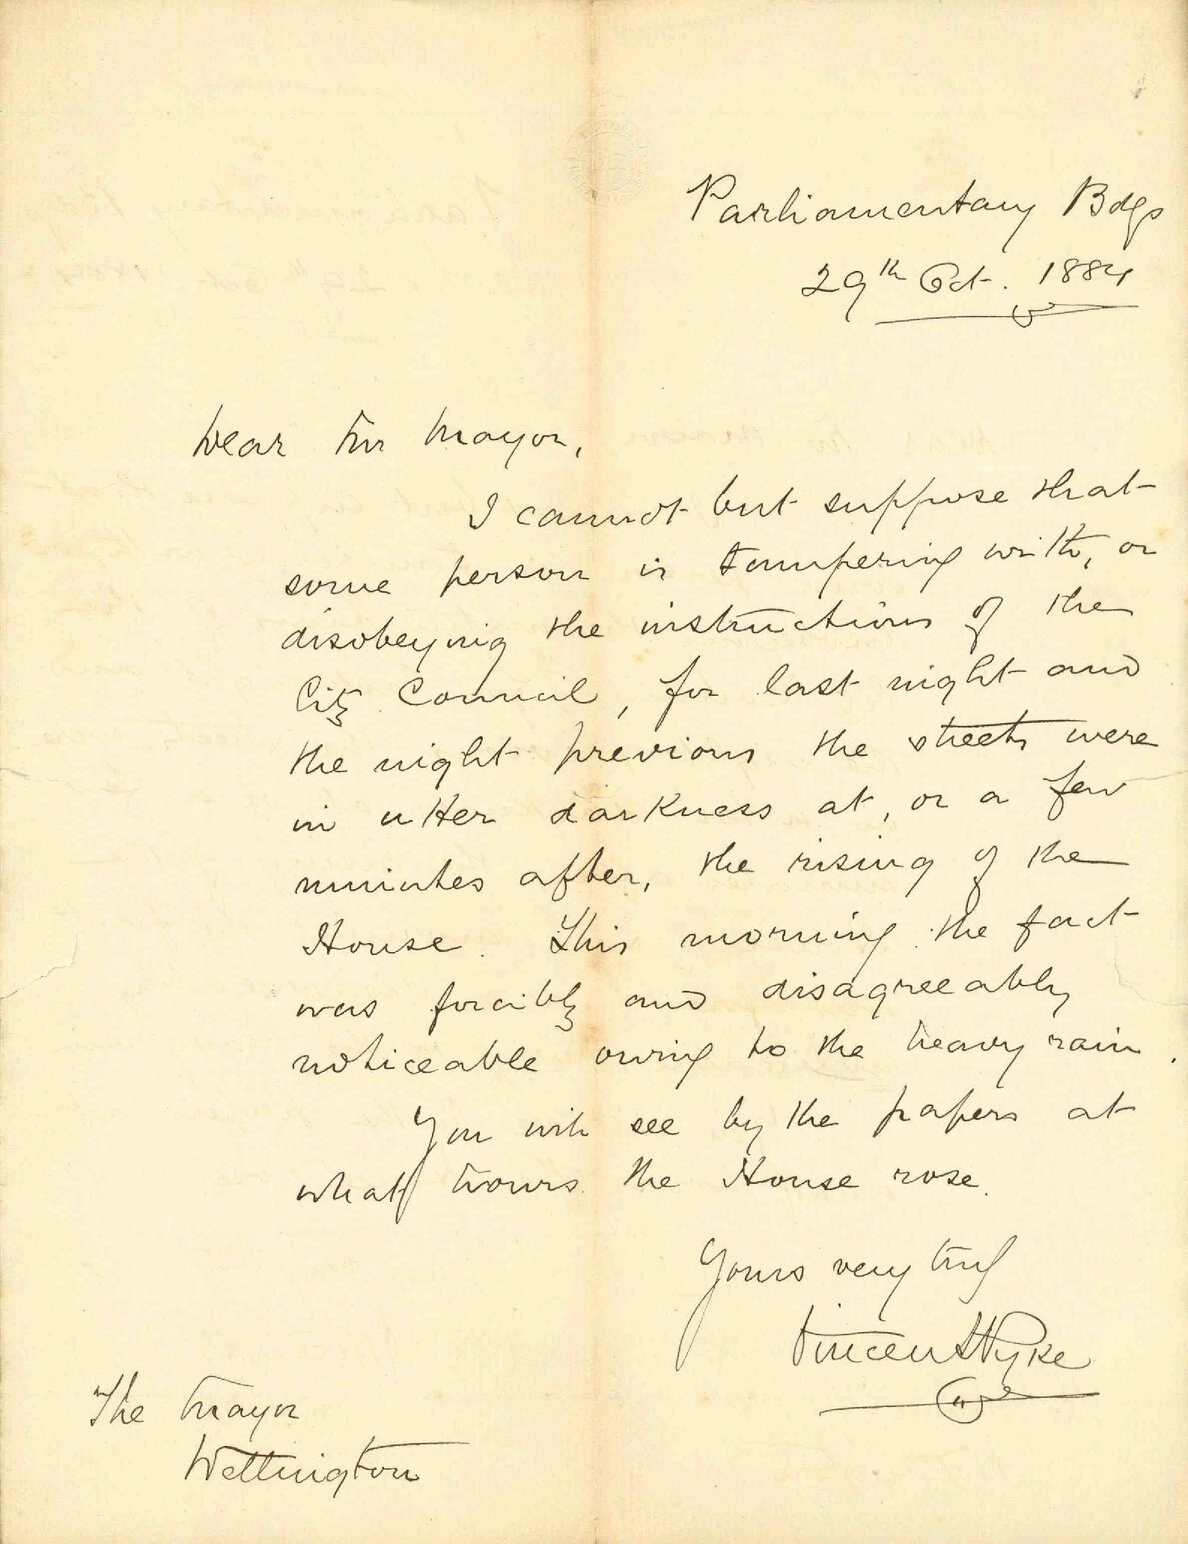 Parliamentary Bdgs
29th Oct. 1884
Dear Mr Mayor,
I cannot but suppose that
some person is tampering with, or
disobeying the instructions of the
City Council, for last night and
the night previous the streets were
in utter darkness at, or a few
minutes after, the rising of the
House. This morning the fact
was forcibly and disagreeably
noticeable owing to the heavy rain.
You will see by the papers at
what hours the House rose.
Yours very truly
Vincent Pyke
The Mayor
Wellington